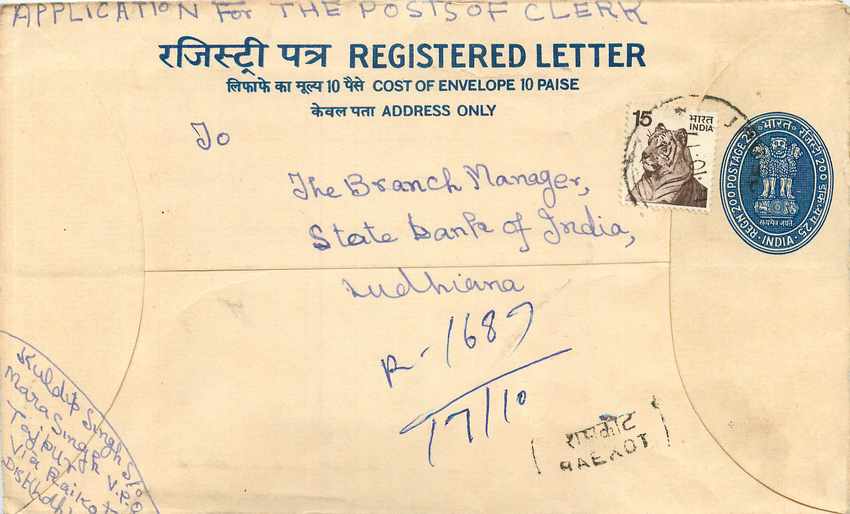 APPLICATION FOR THE POSTS OF CLERK
रजिस्ट्री पत्र REGISTERED LETTER
लिफाफे का मूल्य 10 पैसे COST OF ENVELOPE 10 PAISE
केवल पता ADDRESS ONLY
To
15 भारत
INDIA
भारत रजिस्ट्री 200 डाक-व्यय 25
REGN 200 POSTAGE 25
INDIA
सत्यमेव जयते
The Branch Manager,
State bank of India,
Ludhiana
R-1689
17/10
रायकोट
RAEKOT
Kuldip Singh S/o
Mara Singh V.P.O
Tajpur
Via Raikot